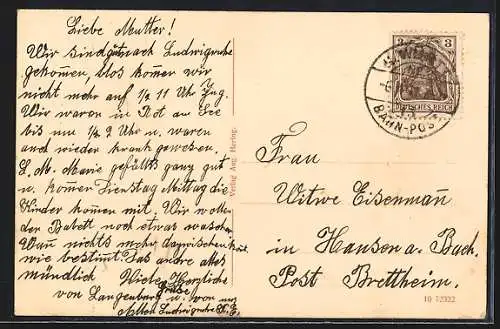 Liebe Mutter!
Wir sind gut nach Ludwigsruhe
gekommen, blos komen wir
nicht mehr auf 1/2 11 Uhr Zug.
Wir waren in Rot am See
bis um 1/2 9 Uhr u. waren
auch wieder krank gewesen.
L. M. Marie gefällts ganz gut
u. komen Dienstag Mittag die
Kinder komen mit. Wir wollen
der Babett noch etwas waschen
Wan nichts mehr dazwischen komt
wie bestimt. Das andre alles
mündlich Viele Herzliche
Grüße
von Langenburg u. von uns
Allen Ludwigsruhe
Verlag Aug. Hering.
3 3
DEUTSCHES REICH
BAHN-POST
Frau
Witwe Eisenman
in Hausen a. Bach.
Post Brettheim.
10 72322